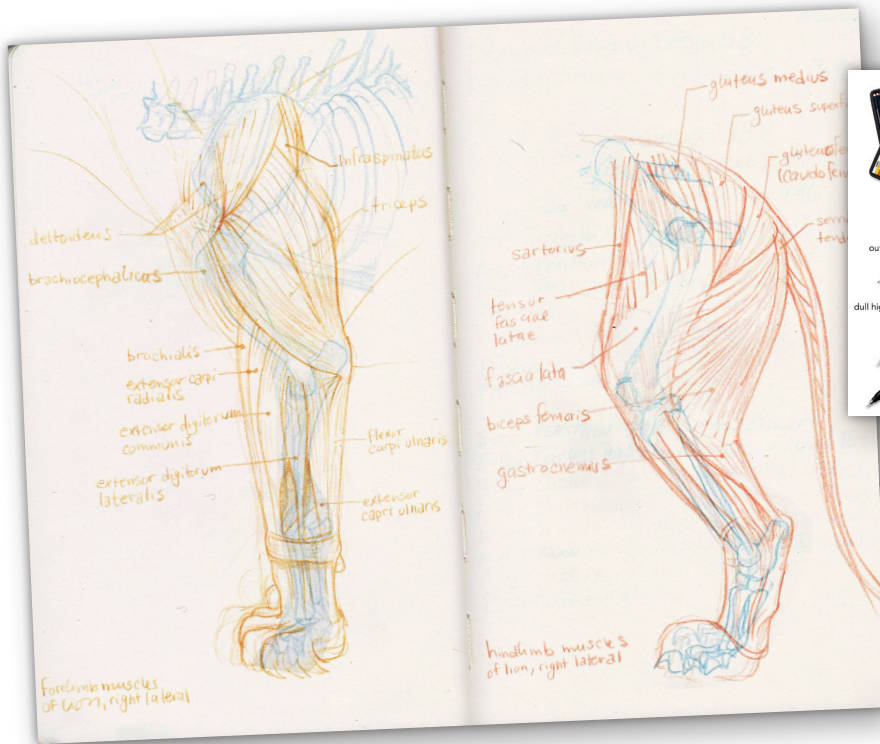 infraspinatus
triceps
deltoideus
brachiocephalicus
brachialis
extensor carpi
radialis
extensor digitorum
communis
extensor digitorum
lateralis
flexor
carpi ulnaris
extensor
capri ulnaris
forelimb muscles
of lion, right lateral
gluteus medius
gluteus
sartorius
tensor
fasciae
latae
fascia lata
biceps femoris
gastrocnemius
hindlimb muscles
of lion, right lateral
dull